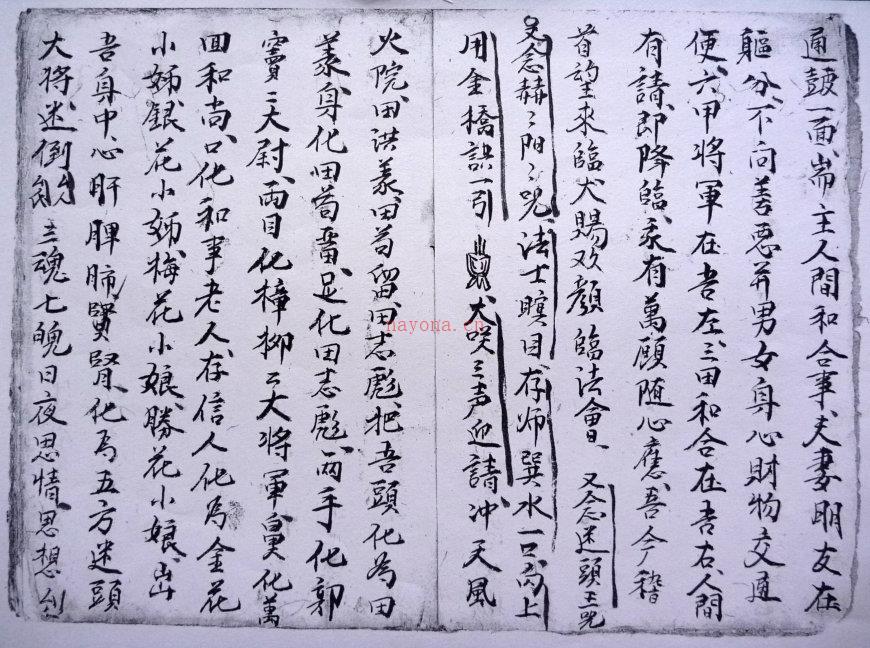 通鼓一面耑主人間和合事夫妻朋友在
軀分不向善惡并男女身心財物交通
便六甲將軍在吾左三田和合在吾右人間
有請即降臨永有萬願随心應吾今稽
首望來臨大賜欢顏臨法會 又念迷頭咒
又念赫〻阳〻咒法士瞑目存师巽水一口向上
用金橋訣一引 大咲三声迎請冲天風
火院田洪義田苟留田志彪把吾頭化為田
義身化田苟畱足化田志彪兩手化郭
竇二大尉兩目化樟柳二大將軍鼻化萬
回和尚口化和事老人存信人化為金花
小姊銀花小姊梅花小娘勝花小娘
吾身中心肝脾肺腎化為五方迷頭
大將迷倒 三魂七魄日夜思情思想
nayona.cn